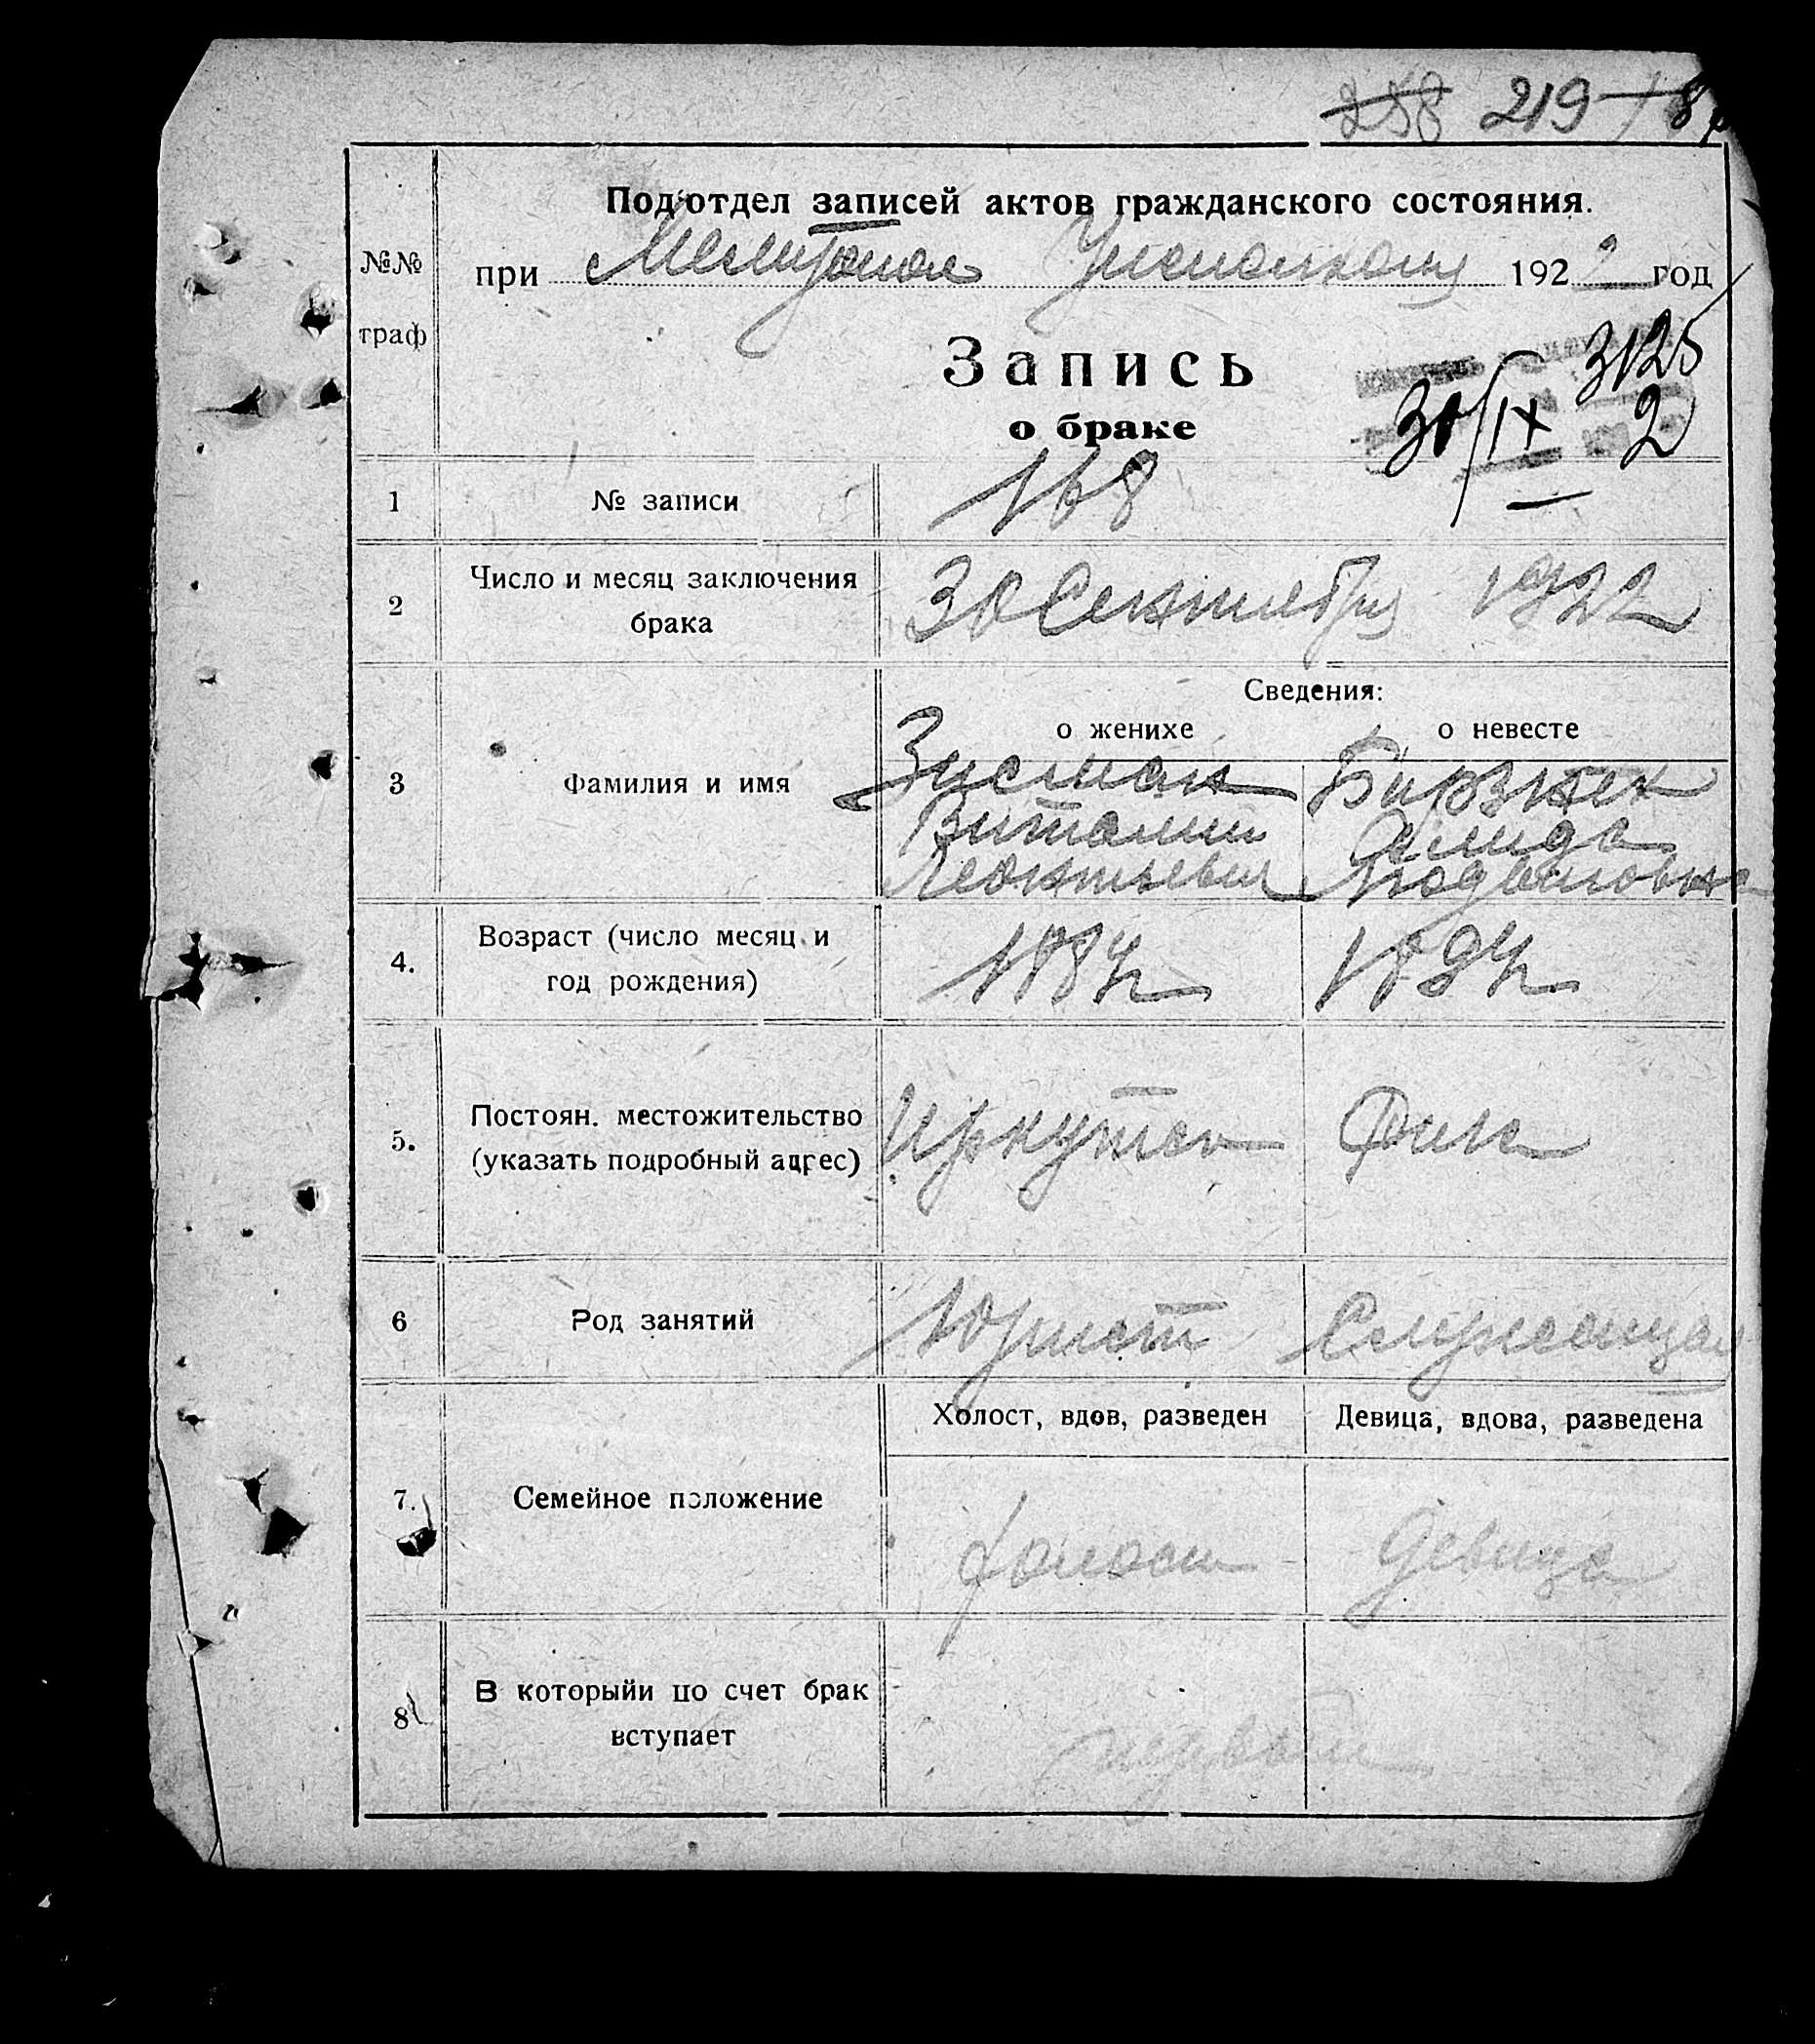 258 219
Под'отдел записей актов гражданского состояния.
№№ граф
при Мелитопол Уисполкома 1922 год
3125
Запись
о браке
30/IX 2
1 № записи 168
2 Число и месяц заключения брака 30 Сентября 1922
Сведения:
о женихе о невесте
3 Фамилия и имя
Зисман
Виталий
Леонтьевич
Аглида
4. Возраст (число месяц и
год рождения)
1884 1894
5. Постоян. местожительство
(указать подробный адрес)
Иркутск
6 Род занятий Юрист Служащая
Холост, вдов, разведен Девица, вдова, разведена
7. Семейное положение холост девица
8 В которыйи по счет брак
вступает
первый